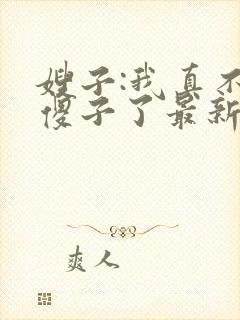 嫂子:我真不
傻子了最新
爽人